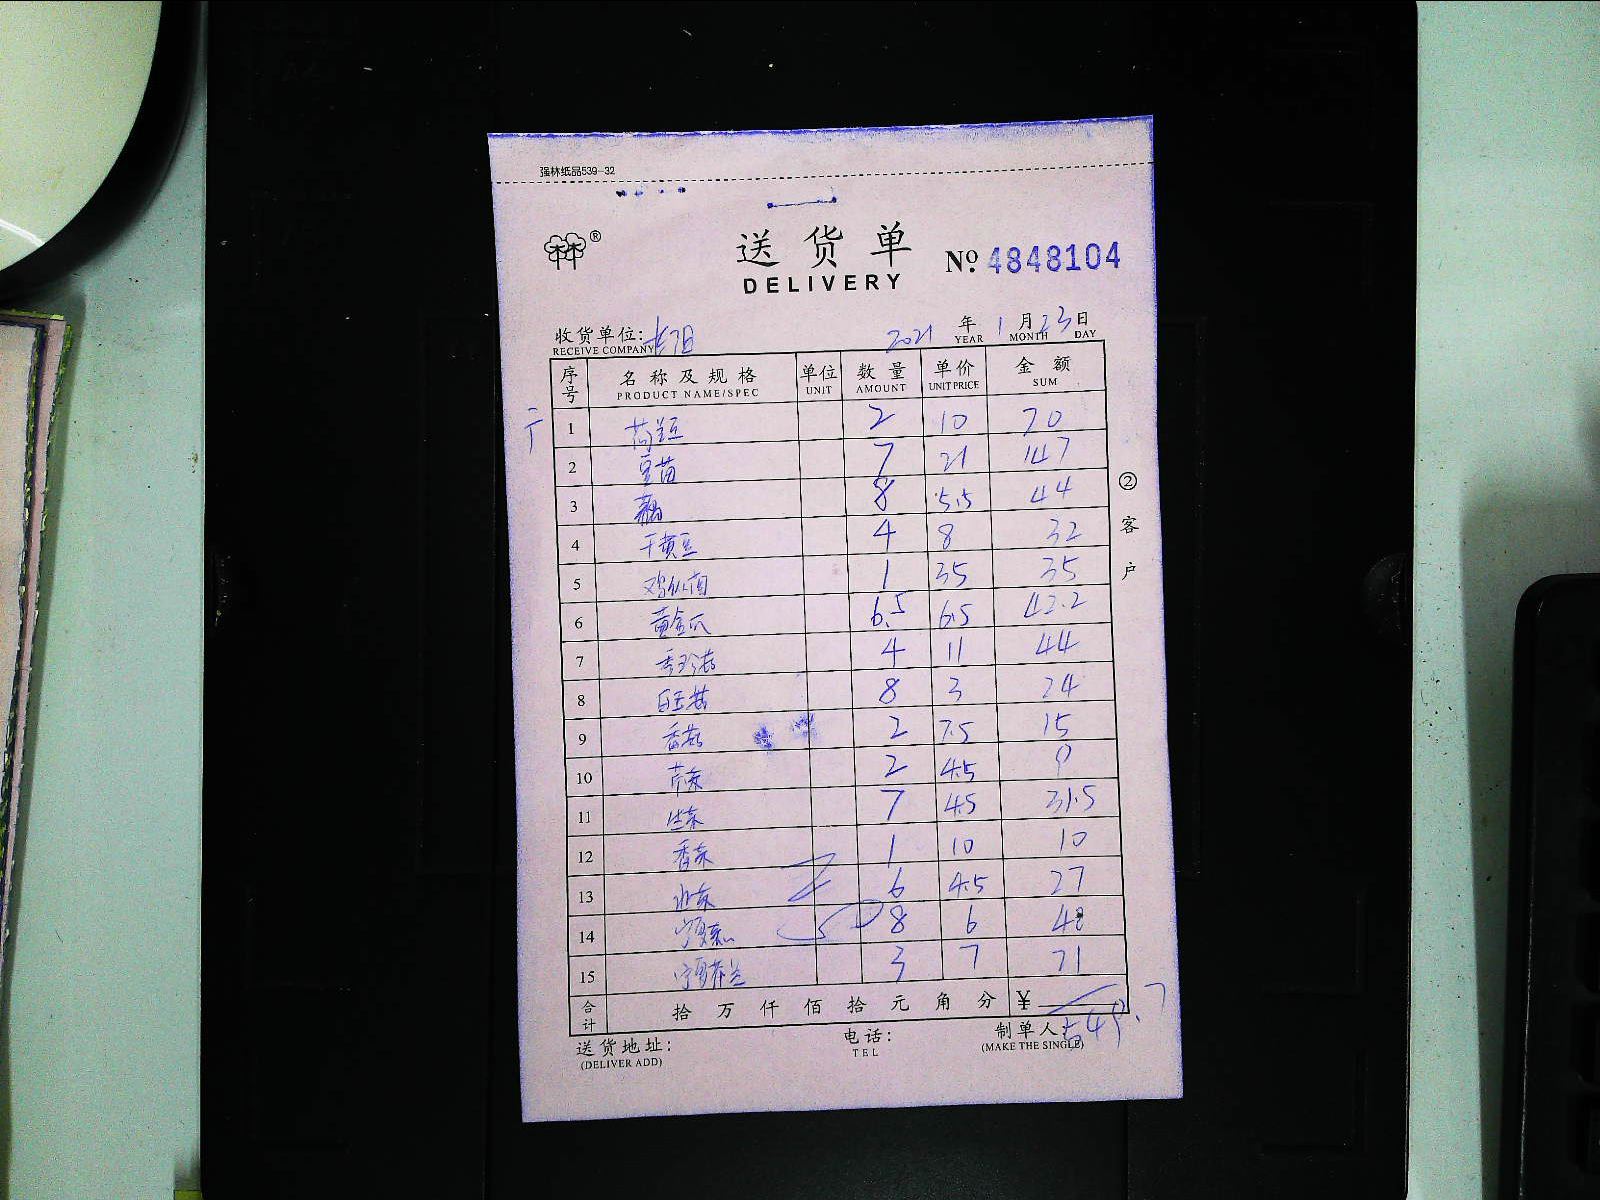 强林纸品539-32
林林®
送货单
DELIVERY
No. 4848104
收货单位:
RECEIVE COMPANY
2021 年 YEAR 1 月 MONTH 23 日 DAY
序号 名称及规格 PRODUCT NAME/SPEC 单位 UNIT 数量 AMOUNT 单价 UNIT PRICE 金额 SUM
1 荷豆 2 10 20
2 豆苗 7 21 147
3 藕 8 5.5 44
4 干黄豆 4 8 32
5 鸡枞菌 1 35 35
6 黄金瓜 6.5 6.5 42.2
7 秀珍菇 4 11 44
8 白玉菇 8 3 24
9 香菇 2 7.5 15
10 芹菜 2 4.5 9
11 生菜 7 4.5 31.5
12 香菜 1 10 10
13 6 4.5 27
14 宁夏菜心 8 6 48
15 宁夏芥兰 3 7 21
合计 拾 万 仟 佰 拾 元 角 分 ¥ 549.7
②客户
送货地址:
(DELIVER ADD)
电话:
TEL
制单人:
(MAKE THE SINGLE)